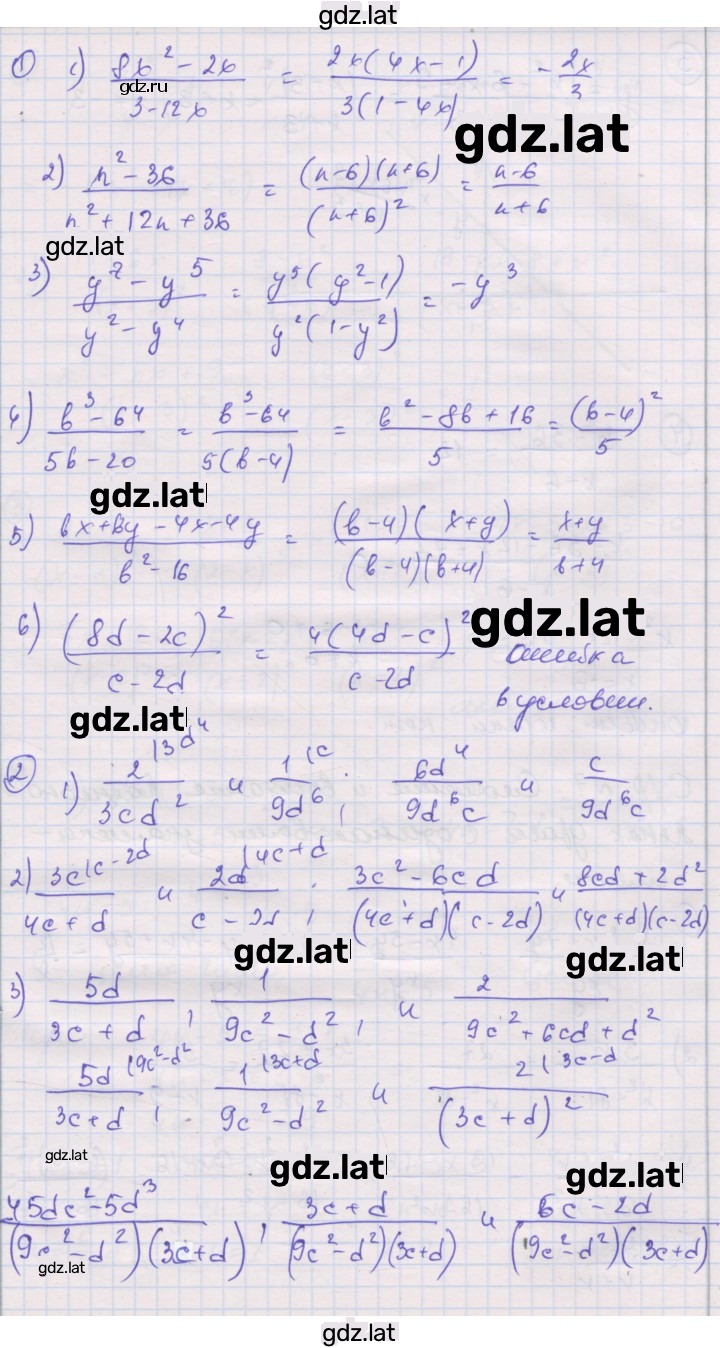 gdz.lat
① 1) (8x² - 2x)/(3 - 12x) = 2x(4x - 1)/3(1 - 4x) = - 2x/3
gdz.ru
gdz.lat
2) (n² - 36)/(n² + 12n + 36) = (n-6)(n+6)/(n+6)² = (n-6)/(n+6)
gdz.lat
3) (y⁷ - y⁵)/(y² - y⁴) = y⁵(y² - 1)/y²(1 - y²) = -y³
4) (b³ - 64)/(5b - 20) = (b³ - 64)/5(b - 4) = (b² - 8b + 16)/5 = (b - 4)²/5
gdz.lat
5) (bx + by - 4x - 4y)/(b² - 16) = (b - 4)(x + y)/(b - 4)(b + 4) = (x + y)/(b + 4)
6) (8d - 2c)²/(c - 2d) = 4(4d - c)²/(c - 2d) Ошибка
gdz.lat
в условии.
gdz.lat
② 1) 2(3d⁴/3cd² и 1(c/9d⁶ ; 6d⁴/9d⁶c и c/9d⁶c
2) 3c(c - 2d/(4c + d) и 2d(4c + d/(c - 2d) ; (3c² - 6cd)/(4c + d)(c - 2d) и (8cd + 2d²)/(4c + d)(c - 2d)
gdz.lat
gdz.lat
3) 5d/(3c + d) , 1/(9c² - d²) , и 2/(9c² + 6cd + d²)
5d(9c² - d²/(3c + d) , 1(3c + d/(9c² - d²) и 2(3c - d/(3c + d)²
gdz.lat
gdz.lat
gdz.lat
(45dc² - 5d³)/(9c² - d²)(3c + d) , (3c + d)/(9c² - d²)(3c + d) и (6c - 2d)/(9c² - d²)(3c + d)
gdz.lat
gdz.lat